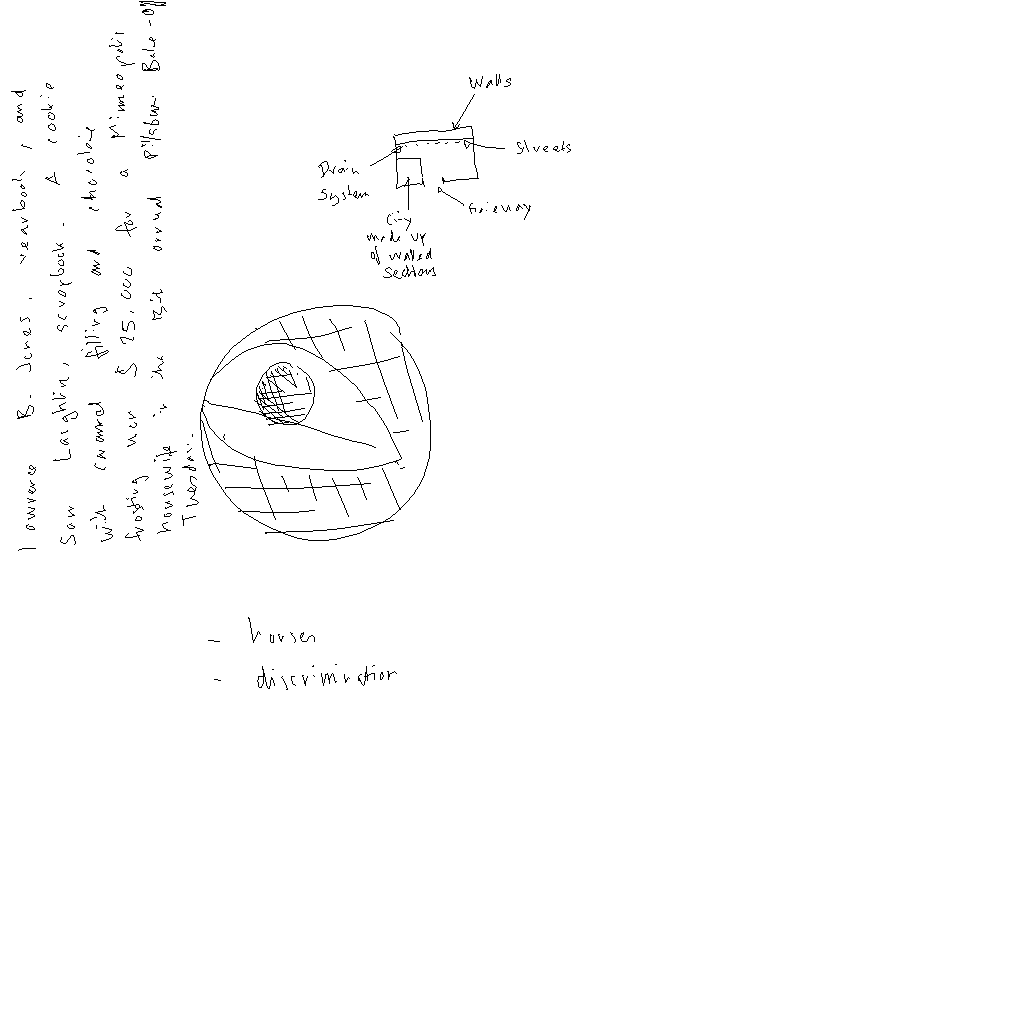 Lawrence B. Jones, yearbook, and
Sam Laughlin, scrapbook. A cookie
with caramel filling and chocolate
frosting won $ 25,000 for a Minneapolis
housewife in the 13th annual Pillsbury Bake-off
Tuesday.
Walls
Streets
Drain
System
Gateway
City
made up
of walled
sections
- houses
- discrimination